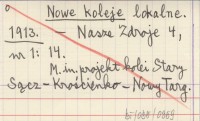 Nowe koleje lokalne.
1913. — Nasze Zdroje 4,
nr 1: 14.
M. in. projekt kolei Stary
Sącz – Krościenko – Nowy Targ.